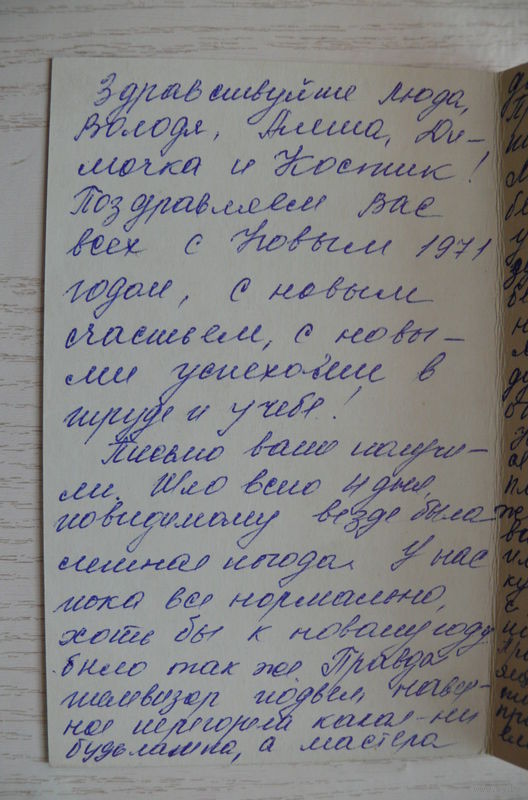 Здравствуйте Люда,
Володя, Алеша, Ди-
мочка и Костик!
Поздравляем Вас
всех с Новым 1971
годом, с новым
счастьем, с новы-
ми успехами в
труде и учебе!
Письмо ваше получи-
ли. Шло всего 4 дня,
повидимому везде была
летная погода. У нас
пока все нормально,
хотя бы к новому году
было так же. Правда
телевизор подвел, навер-
ное перегорела какая-ни
будь лампа, а мастера